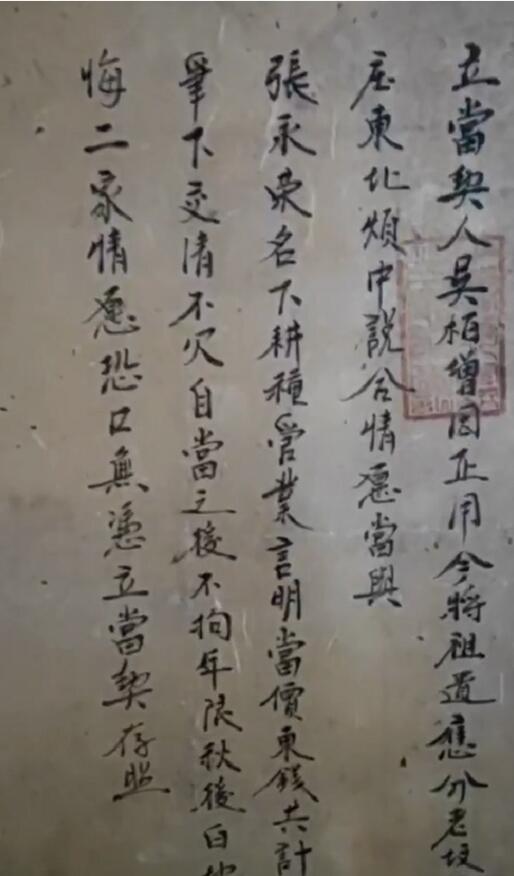 立當契人吳柏增因正用今將祖遺應分老坟
庄東北煩中説合情愿當與
張永荣名下耕種管業言明當價東錢共計
筆下交清不欠自當之後不拘年限秋後白地
悔二家情愿恐口無憑立當契存照